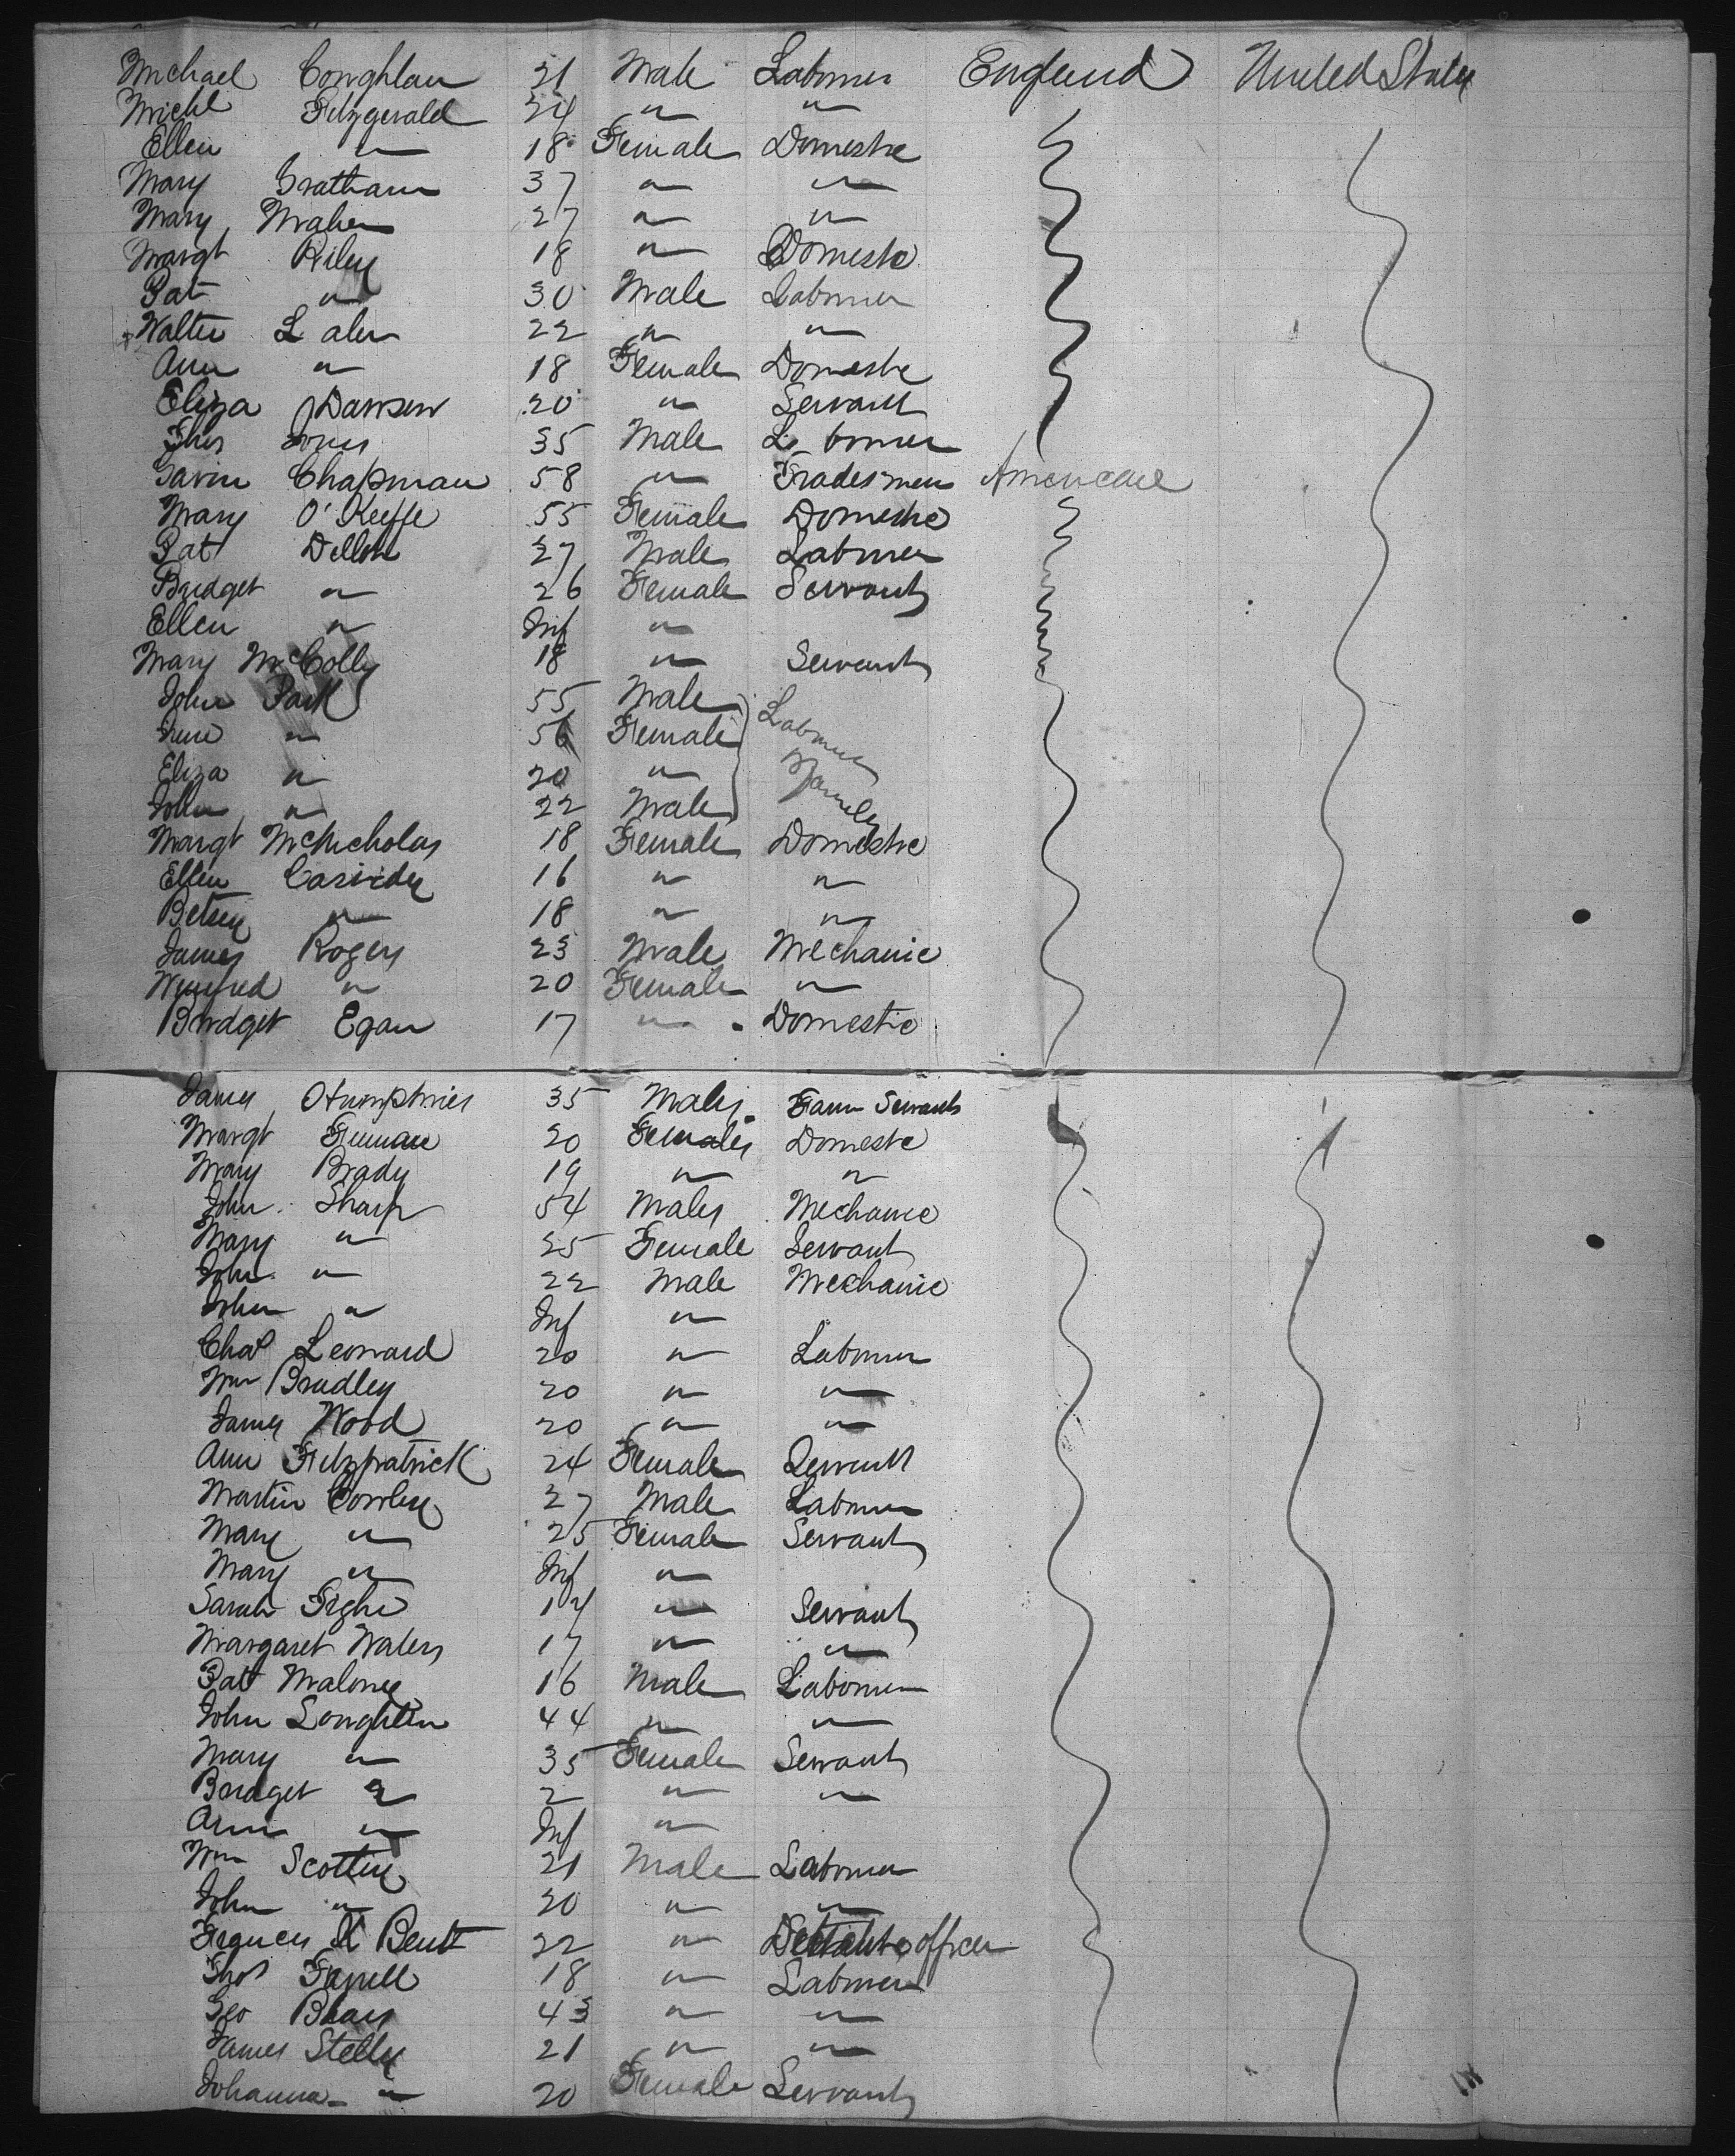 Michael Coughlan 21 Male Labourer England United States
Michl Fitzgerald 24 " "
Ellen " 18 Female Domestic
Mary Grattan 37 " "
Mary Maher 27 " "
Margt Riley 18 " Domestic
Pat " 30 Male Labourer
Walter Lalor 22 " "
Ann " 18 Female Domestic
Eliza Dawson 20 " Servant
Thos Jones 35 Male Labourer
Gavin Chapman 58 " Tradesmen American
Mary O'Keeffe 55 Female Domestic
Pat Dillon 27 Male Labourer
Bridget " 26 Female Servant
Ellen " Inf "
Mary McColly 18 " Servant
John Park 55 Male Labourer
" 56 Female Family
Eliza " 20 "
John " 22 Male
Margt McNicholas 18 Female Domestic
Ellen Cassidy 16 " "
Betsey " 18 " "
James Rogers 23 Male Mechanic
Winifred " 20 Female "
Bridget Egan 17 " Domestic
James Humphries 35 Males Farm Servants
Margt 20 Females Domestic
Mary Brady 19 " "
John Sharp 54 Males Mechanic
Mary " 25 Female Servant
John " 22 Male Mechanic
John " Inf "
Chas Leonard 20 " Labourer
Wm Bradley 20 " "
James Wood 20 " "
Ann Fitzpatrick 24 Female Servant
Martin Cowley 27 Male Labourer
Mary " 25 Female Servant
Mary " Inf "
Sarah Tighe 17 " Servant
Margaret Waters 17 " "
Pat Maloney 16 Male Labourer
John Loughlin 44 " "
Mary " 35 Female Servant
Bridget " 2 " "
Ann " Inf "
Wm 21 Male Labourer
John " 20 " "
Francis H Bent 22 " officer
Thos Farrell 18 " Labourer
Geo 43 " "
James 21 " "
Johanna " 20 Female Servant